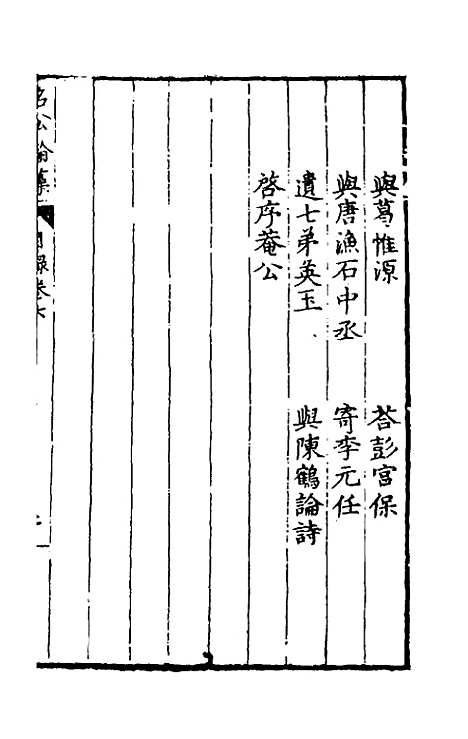 與葛惟源 荅彭宫保
與唐漁石中丞 寄李元任
遺七弟英玉 與陳鶴論詩
啓序菴公
名公翰藻 目録卷七